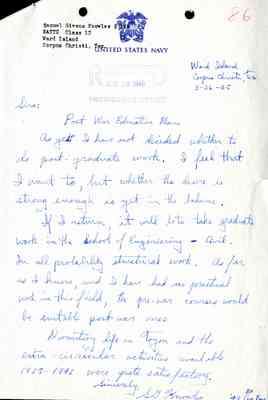 86
Samuel Givens Fowler
RATTC Class 13
Ward Island
Corpus Christi, Tex
UNITED STATES NAVY
Ward Island
Corpus Christi, Tex
Sirs:
Post War Education Plans
As yet I have not decided whether to
do post-graduate work. I feel that
I want to, but whether the desire is
strong enough is yet in the balance.
If I return, it will be to take graduate
work in the School of Engineering - Civil.
In all probability structural work. As far
as I know, and I have had no practical
work in this field, the pre-war courses would
be suitable post-war ones.
Dormitory life in and the
extra-curricular activities available
were quite satisfactory.
Sincerely,